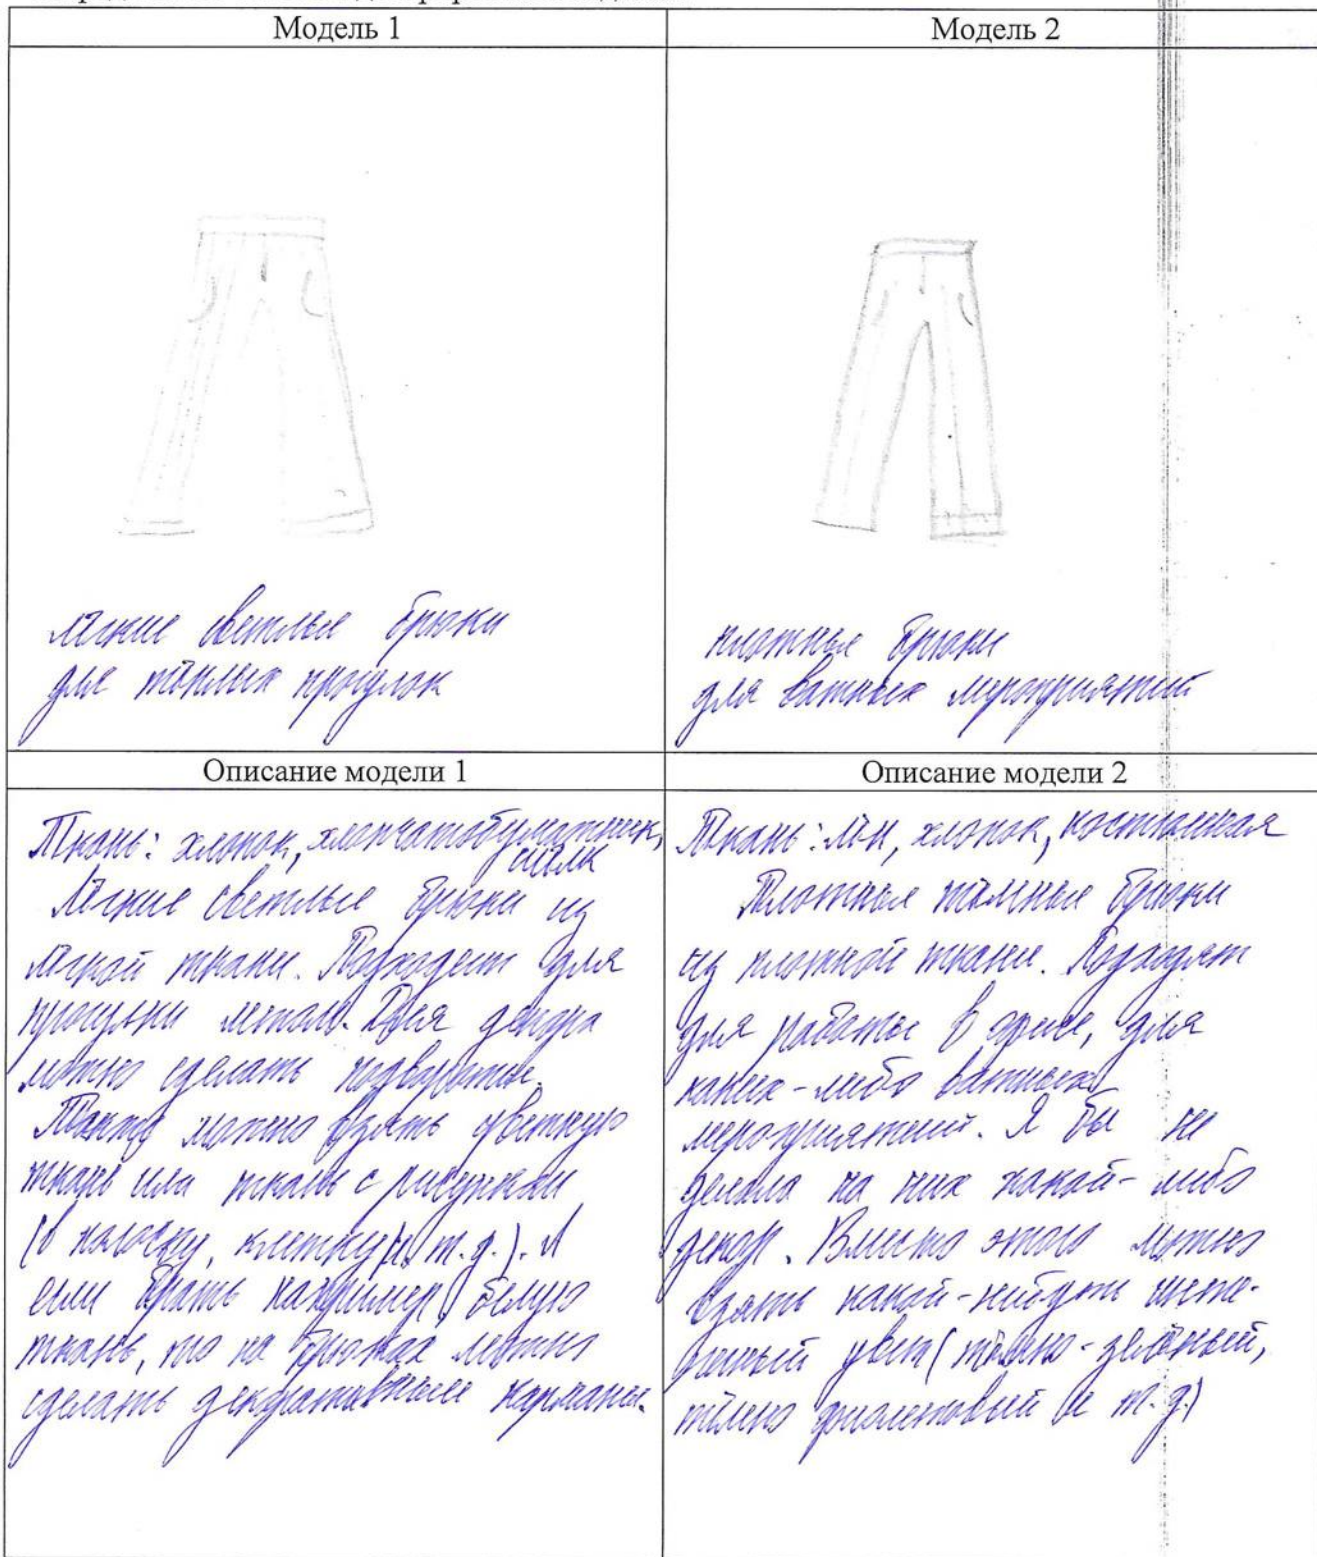 Модель 1
Модель 2
лёгкие светлые брюки
для тёплых прогулок
плотные брюки
для важных мероприятий
Описание модели 1
Описание модели 2
Ткань: хлопок, хлопчатобумажная,
шёлк
Лёгкие светлые брюки из
лёгкой ткани. Подходят для
прогулки летом. Для декора
можно сделать подвороты.
Также можно взять цветную
ткань или ткань с рисунком
(в полоску, клетку и т.д.). А
если брать например, белую
ткань, то на брюках можно
сделать декоративные карманы.
Ткань: лён, хлопок, костюмная
Плотные тёмные брюки
из плотной ткани. Подходят
для работы в офисе, для
каких-либо важных
мероприятий. Я бы не
делала на них какой-либо
декор. Вместо этого можно
взять какой-нибудь
цвет (тёмно-зелёный,
тёмно фиолетовый и т.д.)